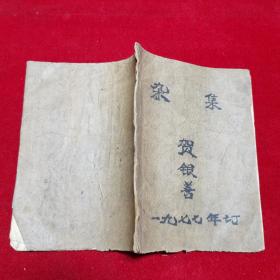 染集
贺银善
一九七七年订